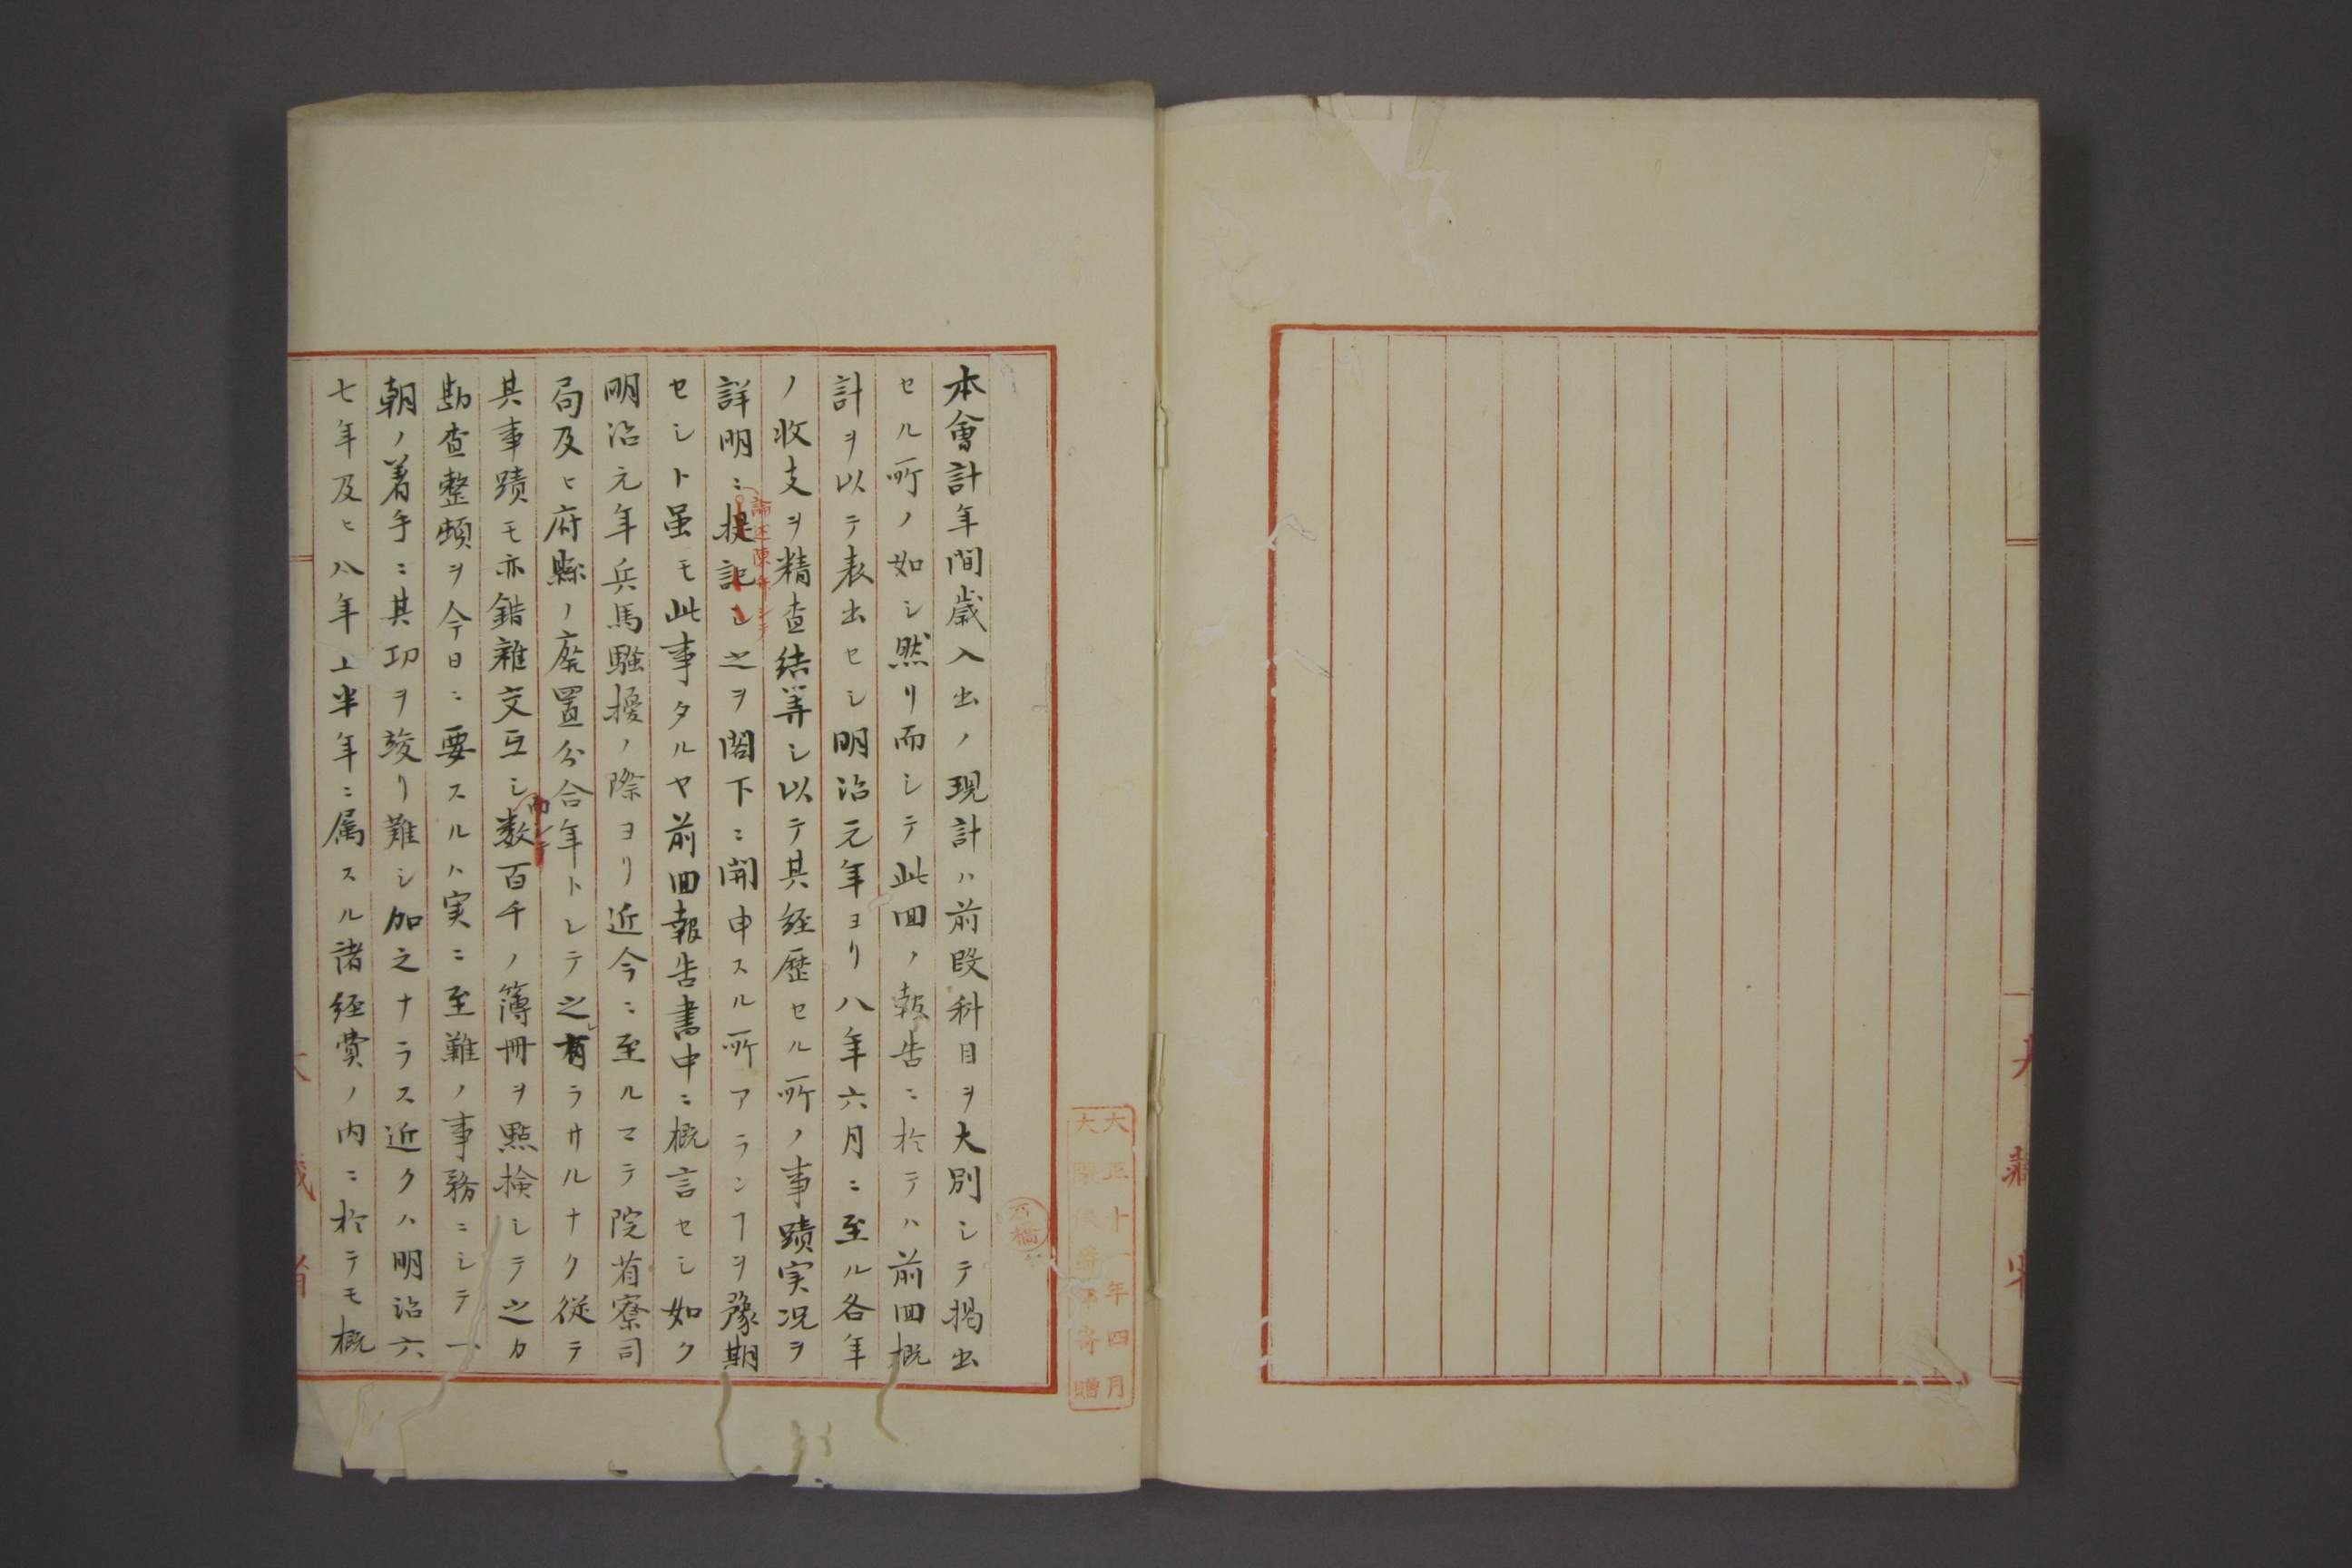 大正十一年四月
大隈侯爵家寄贈
本會計年間歳入出ノ現計ハ前段科目ヲ大別シテ掲出
セル所ノ如シ然リ而シテ此回ノ報告ニ於テハ前回概
計ヲ以テ表出セシ明治元年ヨリ八年六月ニ至ル各年
ノ收支ヲ精査結算シ以テ其経歴セル所ノ事蹟実況ヲ
論述陳弁シテ
詳明ニ提記シ之ヲ閣下ニ開申スル所アランヿヲ豫期
セシト虽モ此事タルヤ前回報告書中ニ概言セシ如ク
明治元年兵馬騒擾ノ際ヨリ近今ニ至ルマテ院省寮司
局及ヒ府縣ノ廃置分合年トシテ之有ラサルナク従テ
而シテ
其事蹟モ亦錯雑交互シ数百千ノ簿冊ヲ點検シテ之カ
勘査整頓ヲ今日ニ要スルハ実ニ至難ノ事務ニシテ一
朝ノ著手ニ其功ヲ竣リ難シ加之ナラス近クハ明治六
七年及ヒ八年上半年ニ属スル諸経費ノ内ニ於テモ概